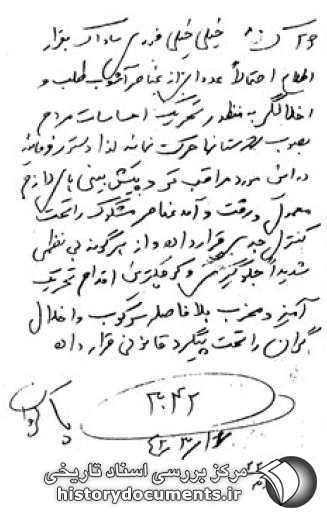 خیلی خیلی فوری ساواک بقرار
اطلاع احتمالاً عده‌ای از عناصر آشوب طلب و
اخلالگر به منظور تحریک احساسات مردم
بصوب شهرستانها حرکت نمایند لذا دستور فرمایید
در این مورد مراقبت و پیش بینی های لازم
معمول و رفت و آمد عناصر مشکوک را تحت
کنترل جدی قرار داده و از هرگونه بی نظمی
شدیداً جلوگیری و کوچکترین اقدام تحریک
آمیز و مخرب بلافاصله سرکوب و اخلال
گران را تحت پیگرد قانونی قرار داده
۳۰۴۲
مرکز بررسی اسناد تاریخی
historydocuments.ir